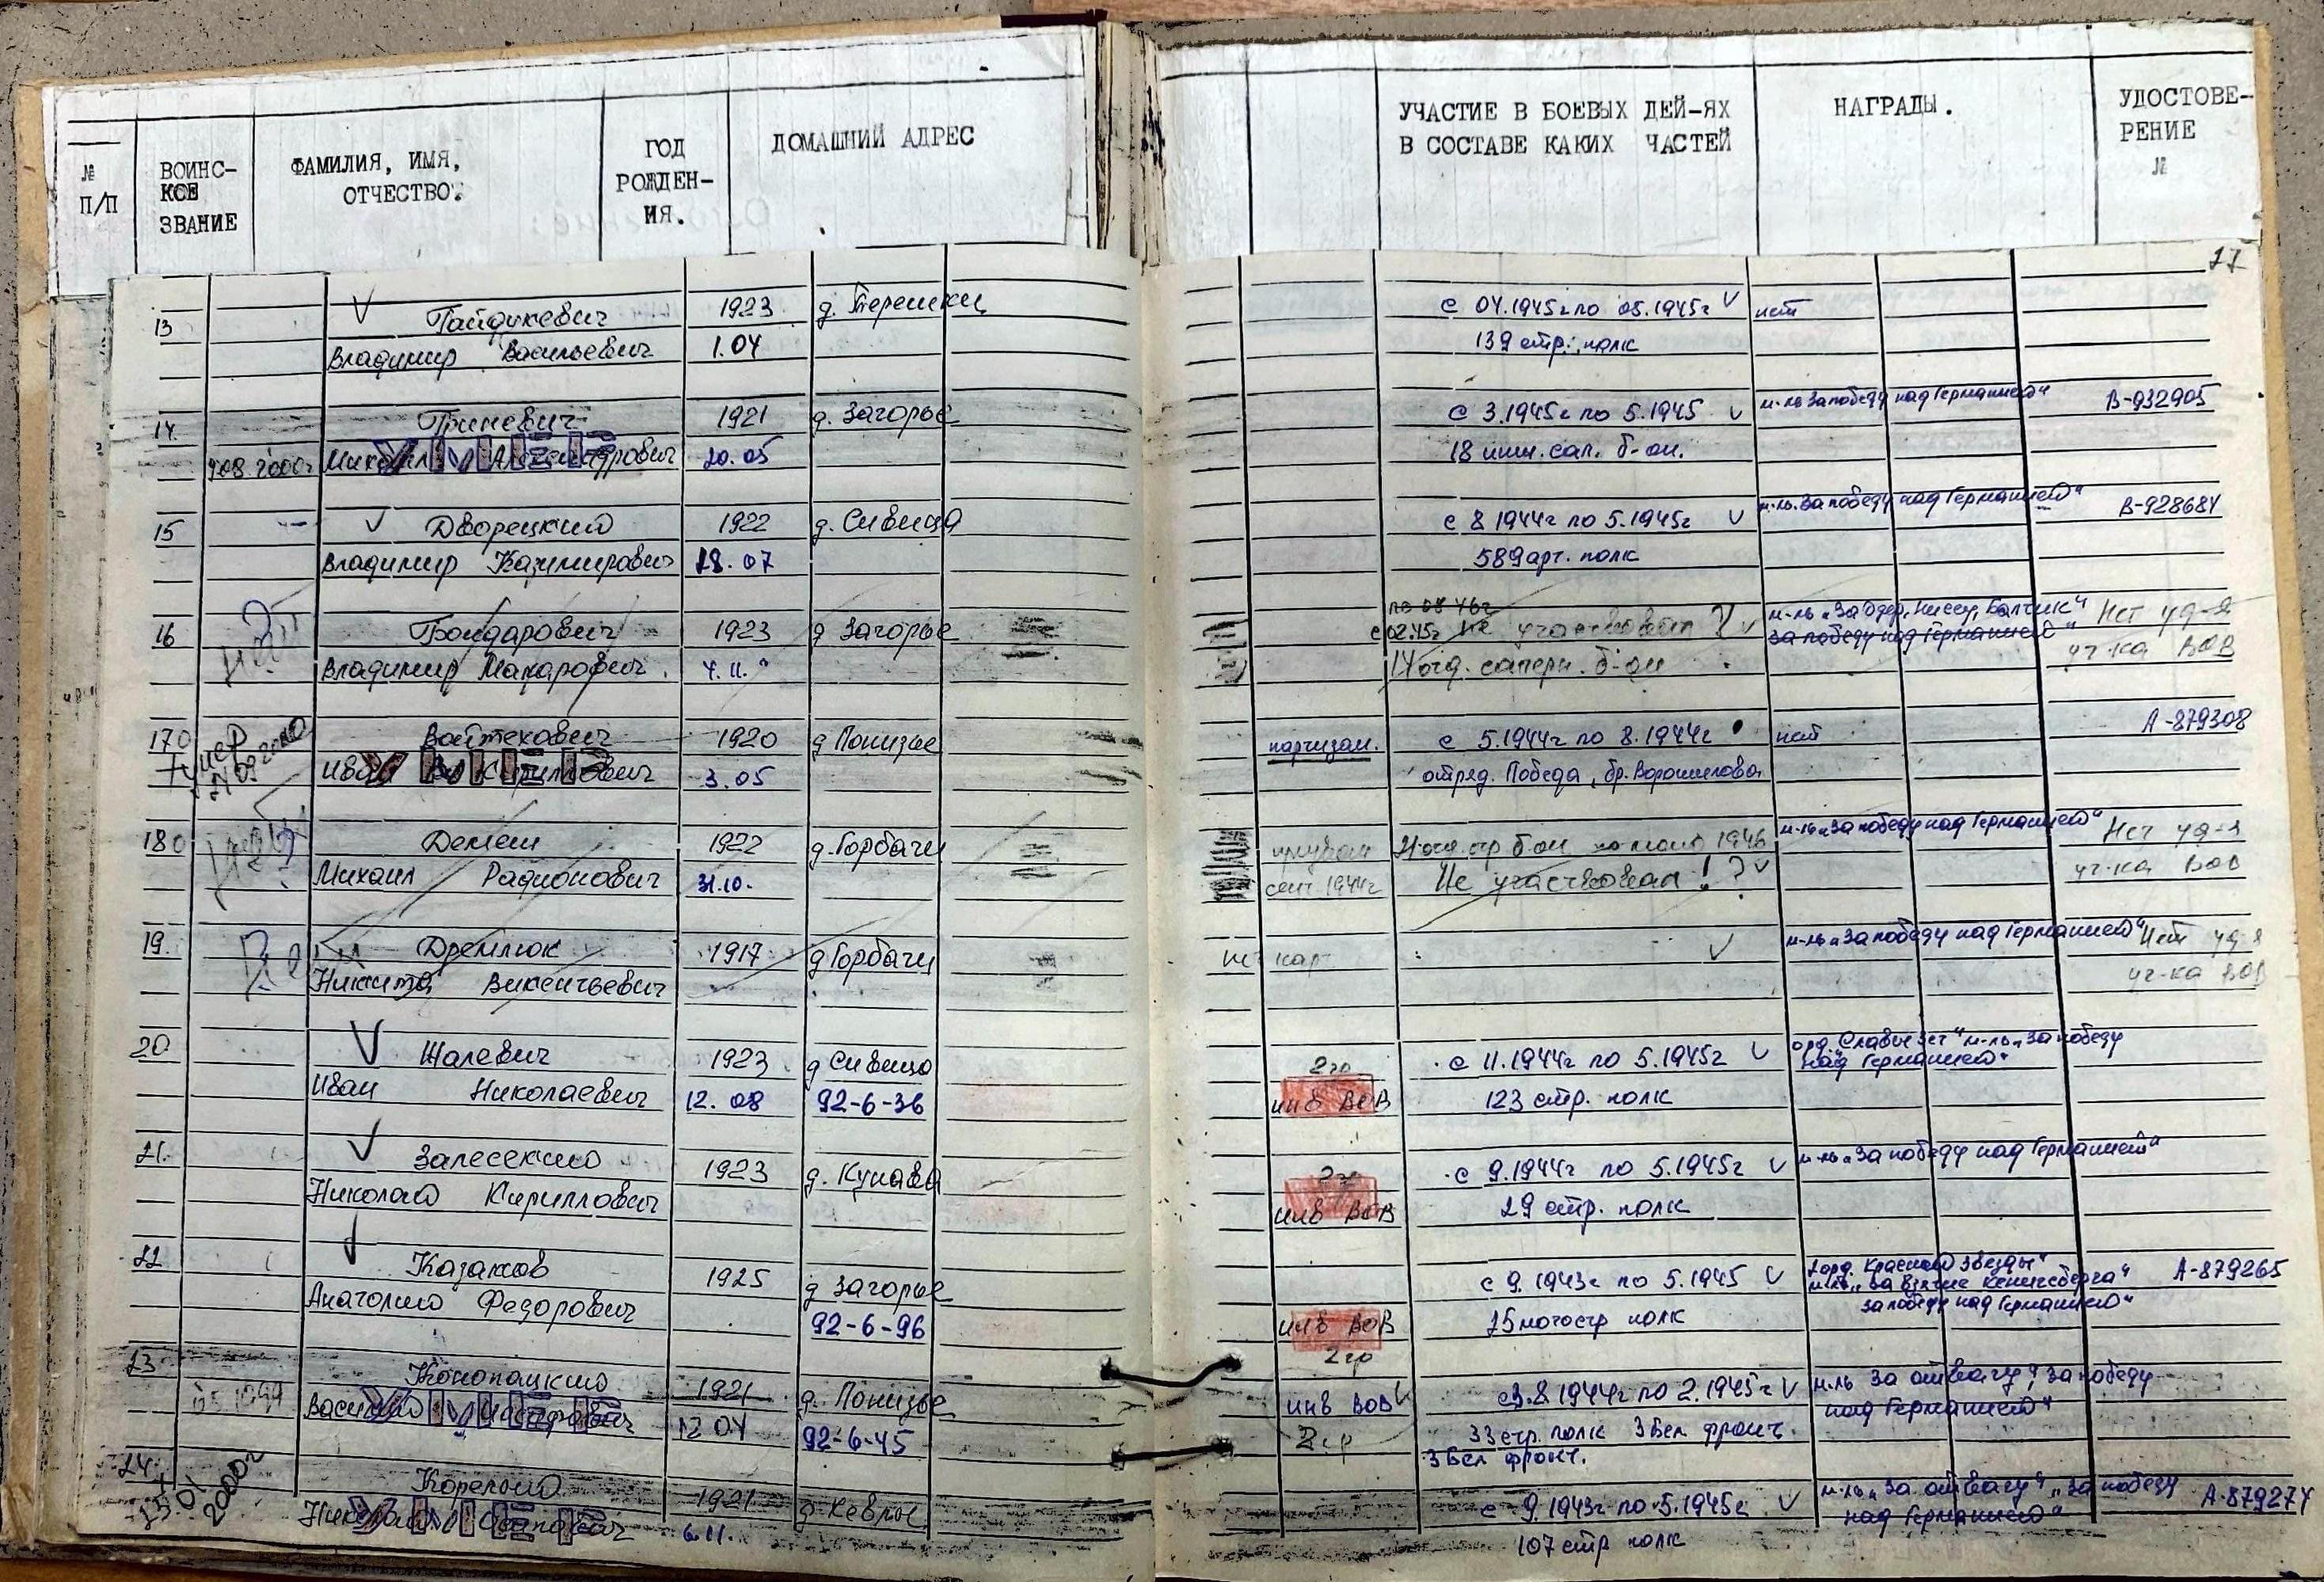 № П/П
ВОИНС-
КОЕ
ЗВАНИЕ
ФАМИЛИЯ, ИМЯ,
ОТЧЕСТВО.
ГОД
РОЖДЕН-
ИЯ.
ДОМАШНИЙ АДРЕС
УЧАСТИЕ В БОЕВЫХ ДЕЙ-ЯХ
В СОСТАВЕ КАКИХ ЧАСТЕЙ
НАГРАДЫ.
УДОСТОВЕ-
РЕНИЕ
№
13 Гайдукевич 1923 д. Терешки с 04.1945г по 05.1945г нет
Владимир Васильевич 1.04 139 стр. полк
14 Гриневич 1921 д. Загорье с 3.1945г по 5.1945 м-ль За победу над Германией" В-932905
Михаил Александрович 20.05 18 инж. сап. б-он.
15 Дворецкий 1922 д. Сивица с 8 1944г по 5.1945г м-ль За победу над Германией" В-928684
Владимир Казимирович 18.07 589 арт. полк
по 08 46г
16 Бондарович 1923 д Загорье с 02.45г не участвовал ? м-ль „За Одер, Ниссу, Балтик" Нет уд-я
Владимир Макарович. 4.11. 14 отд. саперн. б-он за победу над Германией" уч-ка ВОВ
170 умер Войтехович 1920 д Понизье партизан. с 5.1944г по 8.1944г нет А-879308
Иван Кириллович 3.05 отряд. Победа, бр. Ворошилова
180 Демеш 1922 д. Горбачи 1946 м-ль „За победу над Германией" Нет уд-я
Михаил Радионович 31.10. сент. 1944г Не участвовал ! ? уч-ка ВОВ
19. Дремлюк 1917 д Горбачи м-ль „За победу над Германией" Нет уд-я
Никита Викентьевич уч-ка ВОВ
20 Шалевич 1923 д Сивица 2 гр с 11.1944г по 5.1945г орд. Славы 3ст" м-ль „За победу
над Германией"
Иван Николаевич 12.08 92-6-36 инв ВОВ 123 стр. полк
21. Залесский 1923 д. Кунава 2 гр с 9.1944г по 5.1945г м-ль „За победу над Германией"
Николай Кириллович инв ВОВ 29 стр. полк
22 Казаков 1925 д Загорье с 9.1943г по 5.1945 орд. Красной звезды" А-879265
м-ль „за взятие Кенигсберга"
за победу над Германией"
Анатолий Федорович 92-6-96 инв ВОВ 15 мотостр полк
2 гр
23 Конопацкий 1921 д. Понизье инв ВОВ 8.1944г по 2.1945г м-ль За отвагу" За победу
над Германией"
Василий 12 04 92-6-45 2 гр 33 стр. полк 3 Бел фронт.
3 Бел фронт.
24 Корепой 1921 д Кевлы с 9.1943г по 5.1945г м-ль „За отвагу" „за победу А-879274
над Германией"
15.01 2000г Осипович 6.11. 107 стр полк